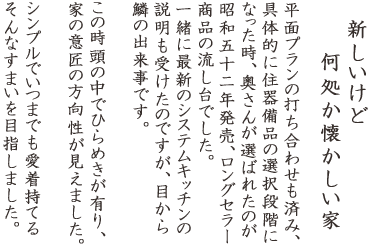 新しいけど
何処か懐かしい家
平面プランの打ち合わせも済み、
具体的に住器備品の選択段階に
なった時、奥さんが選ばれたのが
昭和五十二年発売、ロングセラー
商品の流し台でした。
一緒に最新のシステムキッチンの
説明も受けたのですが、目から
鱗の出来事です。
この時頭の中でひらめきが有り、
家の意匠の方向性が見えました。
シンプルでいつまでも愛着持てる
そんなすまいを目指しました。